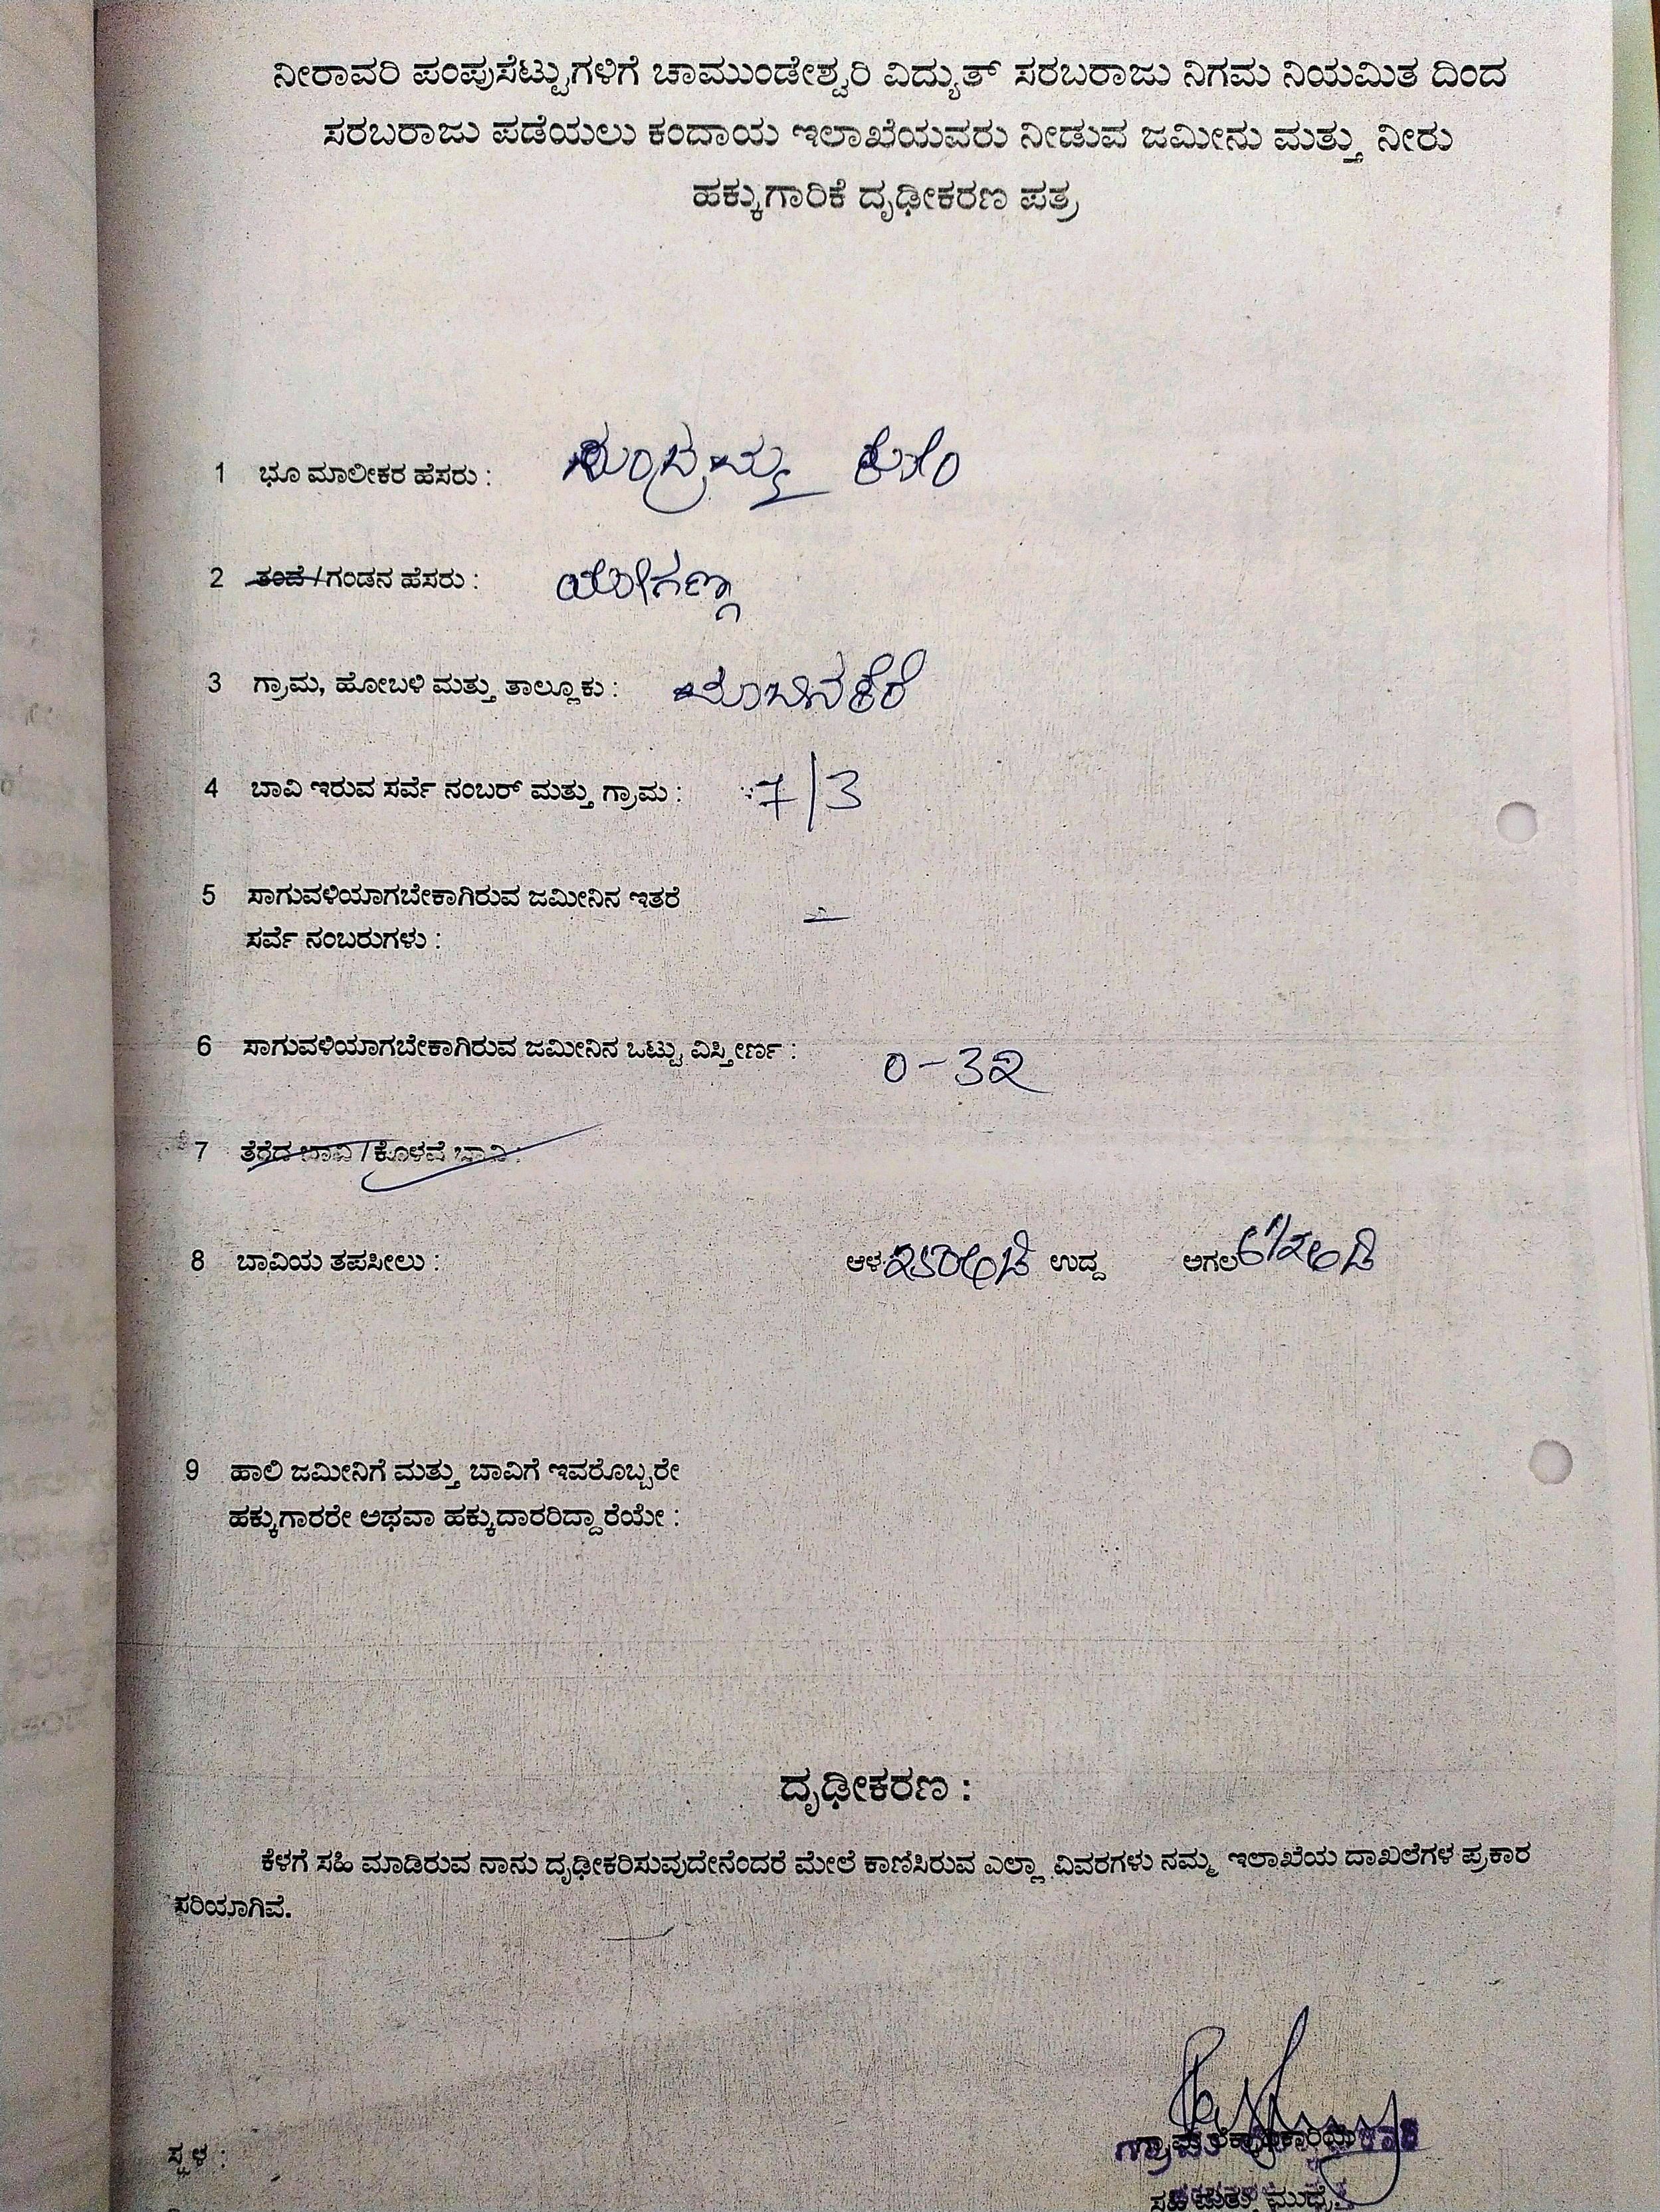 ನೀರಾವರಿ ಪಂಪುಸೆಟ್ಟುಗಳಿಗೆ ಚಾಮುಂಡೇಶ್ವರಿ ವಿದ್ಯುತ್ ಸರಬರಾಜು ನಿಗಮ ನಿಯಮಿತ ದಿಂದ
ಸರಬರಾಜು ಪಡೆಯಲು ಕಂದಾಯ ಇಲಾಖೆಯವರು ನೀಡುವ ಜಮೀನು ಮತ್ತು ನೀರು
ಹಕ್ಕುಗಾರಿಕೆ ದೃಢೀಕರಣ ಪತ್ರ
1 ಭೂ ಮಾಲೀಕರ ಹೆಸರು :
2 ತಂದೆ / ಗಂಡನ ಹೆಸರು : ಯೋಗಣ್ಣ
3 ಗ್ರಾಮ, ಹೋಬಳಿ ಮತ್ತು ತಾಲ್ಲೂಕು :
4 ಬಾವಿ ಇರುವ ಸರ್ವೆ ನಂಬರ್ ಮತ್ತು ಗ್ರಾಮ : 7/3
5 ಸಾಗುವಳಿಯಾಗಬೇಕಾಗಿರುವ ಜಮೀನಿನ ಇತರೆ
ಸರ್ವೆ ನಂಬರುಗಳು : –
6 ಸಾಗುವಳಿಯಾಗಬೇಕಾಗಿರುವ ಜಮೀನಿನ ಒಟ್ಟು ವಿಸ್ತೀರ್ಣ : 0-32
7 ತೆರೆದ ಬಾವಿ / ಕೊಳವೆ ಬಾವಿ :
8 ಬಾವಿಯ ತಪಸೀಲು : ಆಳ 250ಅಡಿ ಉದ್ದ ಅಗಲ 6 1/2 ಅಡಿ
9 ಹಾಲಿ ಜಮೀನಿಗೆ ಮತ್ತು ಬಾವಿಗೆ ಇವರೊಬ್ಬರೇ
ಹಕ್ಕುಗಾರರೇ ಅಥವಾ ಹಕ್ಕುದಾರರಿದ್ದಾರೆಯೇ :
ದೃಢೀಕರಣ :
ಕೆಳಗೆ ಸಹಿ ಮಾಡಿರುವ ನಾನು ದೃಢೀಕರಿಸುವುದೇನೆಂದರೆ ಮೇಲೆ ಕಾಣಿಸಿರುವ ಎಲ್ಲಾ ವಿವರಗಳು ನಮ್ಮ ಇಲಾಖೆಯ ದಾಖಲೆಗಳ ಪ್ರಕಾರ
ಸರಿಯಾಗಿವೆ.
ಸ್ಥಳ :